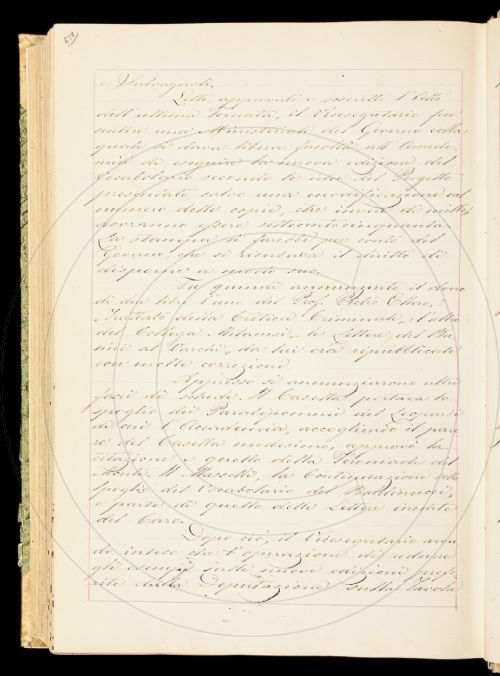 Letto, approvato e soscritto l'Atto
dell'ultima Tornata, il Vicesegretario fa
sentire una Ministeriale del Governo colla
quale si dava libera facoltà all'Accade-
mia di eseguire la nuova edizione del
Vocabolario secondo le idee del Progetto
presentato, salvo una modificazione nel
numero delle copie, che invece di mille,
dovranno essere settecentocinquanta.
La stampa si farebbe per conto del
Governo, che si riserbava il diritto di
disporne a modo suo.
Fu quindi annunziato il dono
di due libri l'uno del Prof. Pietro Ellero,
Trattato della Critica Criminale, l'altro
del Collega Milanesi, le Lettere del
al Varchi, da lui ora ripubblicate
con molte correzioni.
Appresso si annunziarono altri
fasci di schede. Il Casella portava lo
spoglio dei Paralipomeni del Leopardi
di cui l'Accademia, accogliendo il pare-
re del Casella medesimo, approvò la
citazione e quello della Feroniade del
Monti. Il Mussetti, la Continuazione dello
spoglio del Vocabolario del Baldinucci,
e parte di quello delle Lettere inedite
del Caro.
Dopo ciò, il Vicesegretario
inteso che l'operazione di ridurre
gli esempj sulle nuove edizioni
dalla Deputazione sulla Tavola